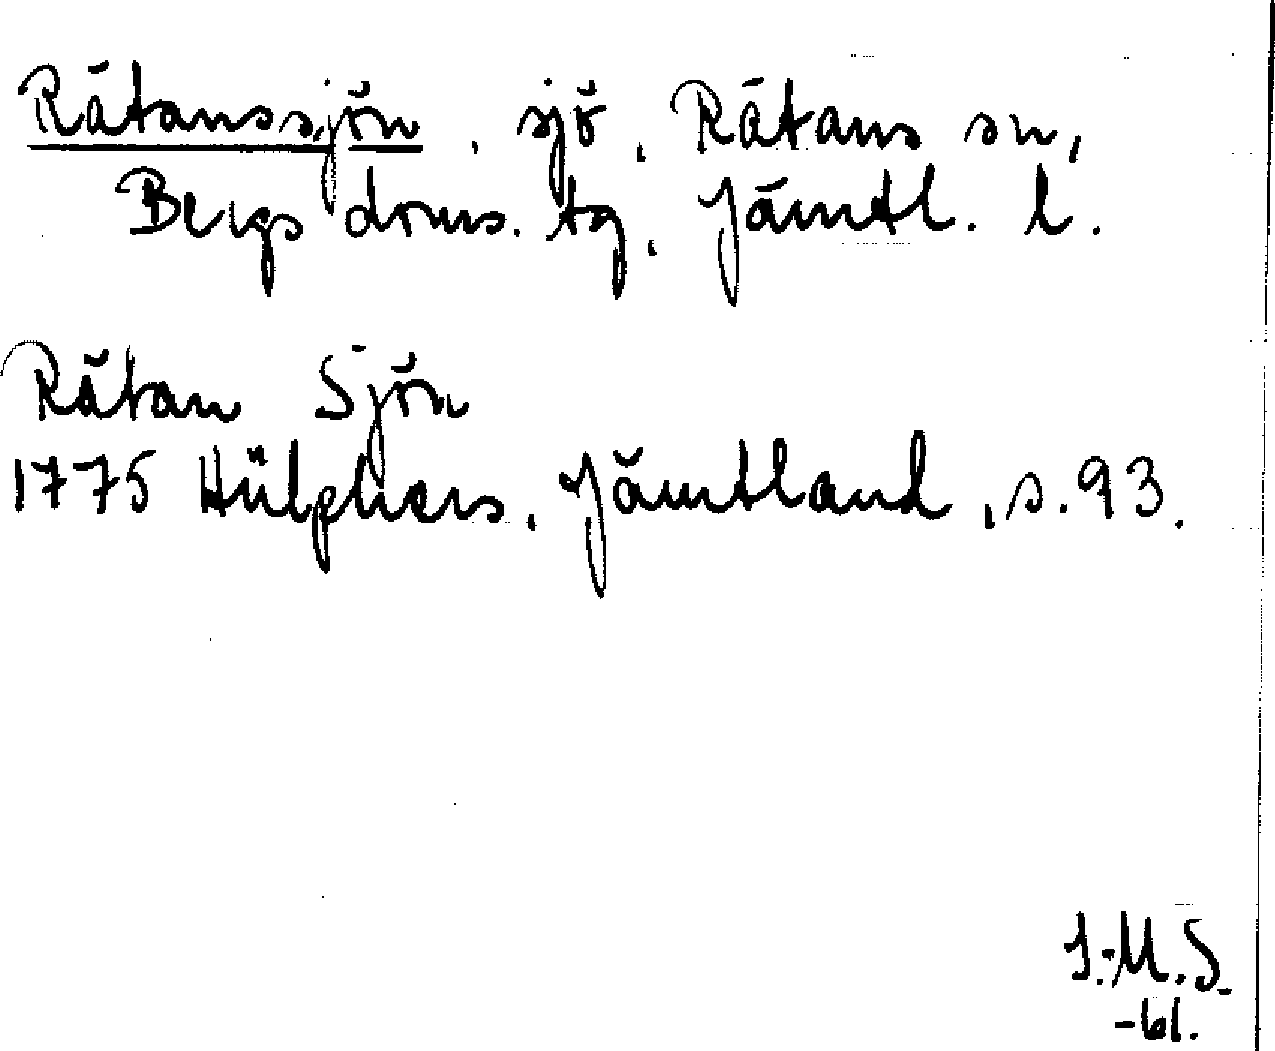 Rätanssjön, sjö, Rätans sn,
Bergs doms. tg, Jämtl. l.
Rätan Sjön
1775 Hülphers, Jämtland, s. 93.
I.-M.S.
-61.